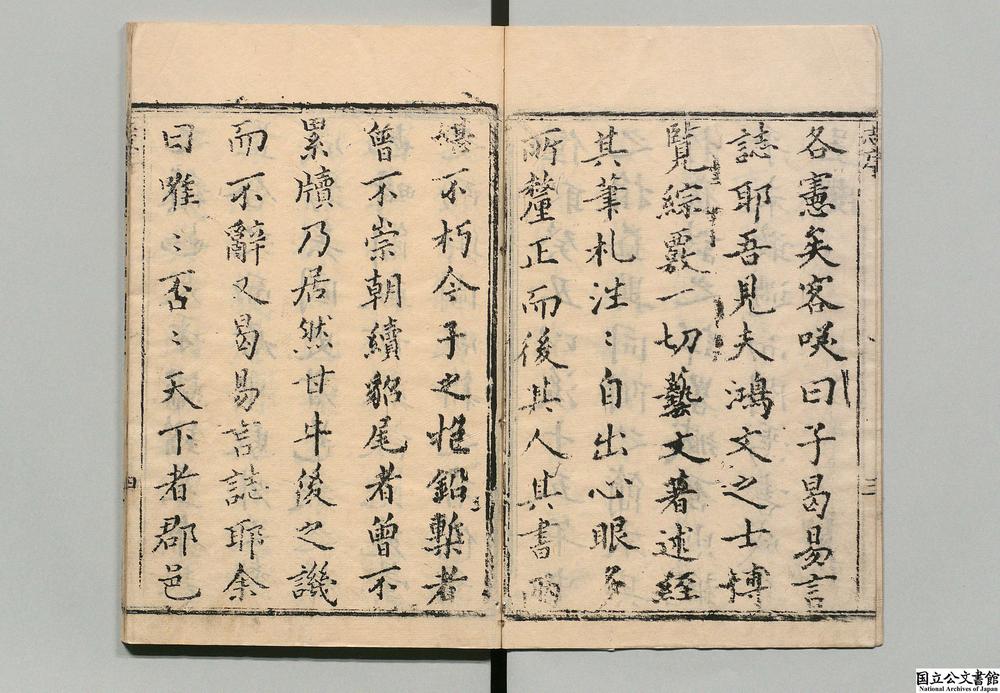 志序
各憲矣客咲曰子曷易言
誌耶吾見夫鴻文之士博
覽綜覈一切藝文著述經
其筆札泩〻自出心眼多
所釐正而後其人其書兩
三
堪不朽今子之抱鉛槧者
曾不崇朝續貂尾者曾不
累牘乃居然甘牛後之譏
而不辭又曷易言誌耶余
曰唯〻否〻天下者郡邑
四
国立公文書館
National Archives of Japan